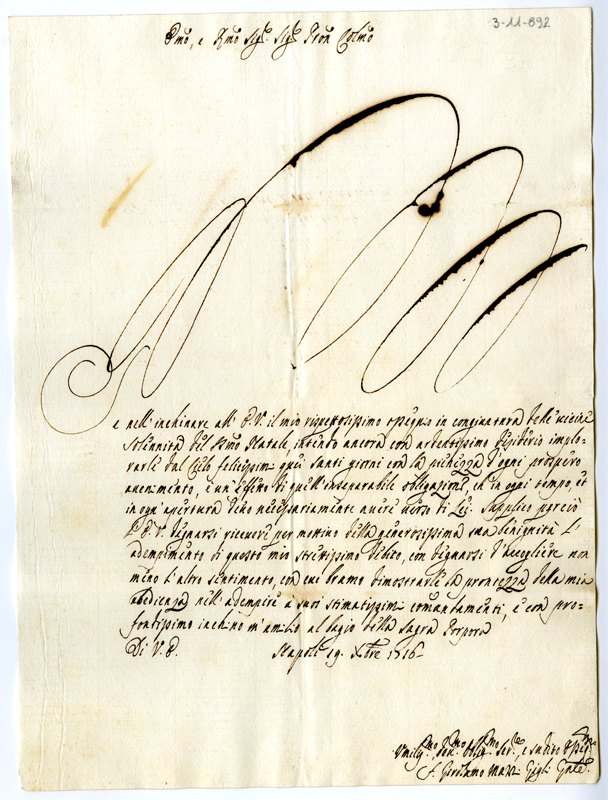 3-11-692
Emo, e Rmo Sigr. Sigr. Pron Colmo
e nell' inchinare all' E. V. il mio rispettosissimo ossequio in congiuntura delle vicine
solennità del Smo Natale, intendo ancora con ardentissimo desiderio implo=
rarle dal Cielo felicissimi quei Santi giorni con la pienezza d'ogni prospero
avenimento, è un effetto di quell' inseparabile obligazione, che in ogni tempo, et
in ogn' apertura devo necessariamente avere verso di Lei. Supplico perciò
l' E. V. degnarsi ricevere per mottivo della generosissima sua benignità l'
adempimento di questo mio strettissimo debito, con degnarsi d'accogliere non
meno l'altro sentimento, con cui bramo dimostrarle la prontezza della mia
obedienza nell' adempire a suoi stimatissimi comandamenti, e con pro=
fondissimo inchino m'umilio al bagio della Sagra Porpora
Di V. E. Napoli 19. Xbre 1716
Umilmo, Devmo Obligmo Serre, e suddito
F. Girolamo Maria Gigli Gnle